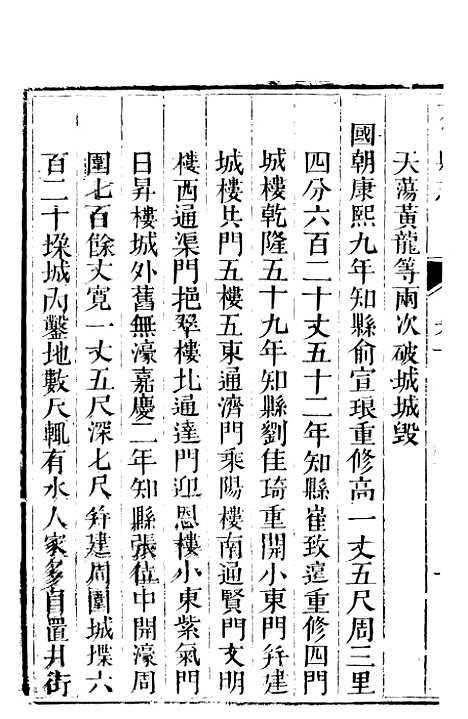 天蕩黃龍等兩次破城城毀
國朝康熙九年知縣俞宣琅重修高一丈五尺周三里
四分六百二十丈五十二年知縣崔致遠重修四門
城樓乾隆五十九年知縣劉佳琦重開小東門并建
城樓共門五樓五東通濟門乘陽樓南通賢門文明
樓西通渠門挹翠樓北通達門迎恩樓小東紫氣門
日昇樓城外舊無濠嘉慶二年知縣張位中開濠周
圍七百餘丈寬一丈五尺深七尺并建周圍城堞六
百二十垛城內鑿地數尺輒有水人家多自置井街